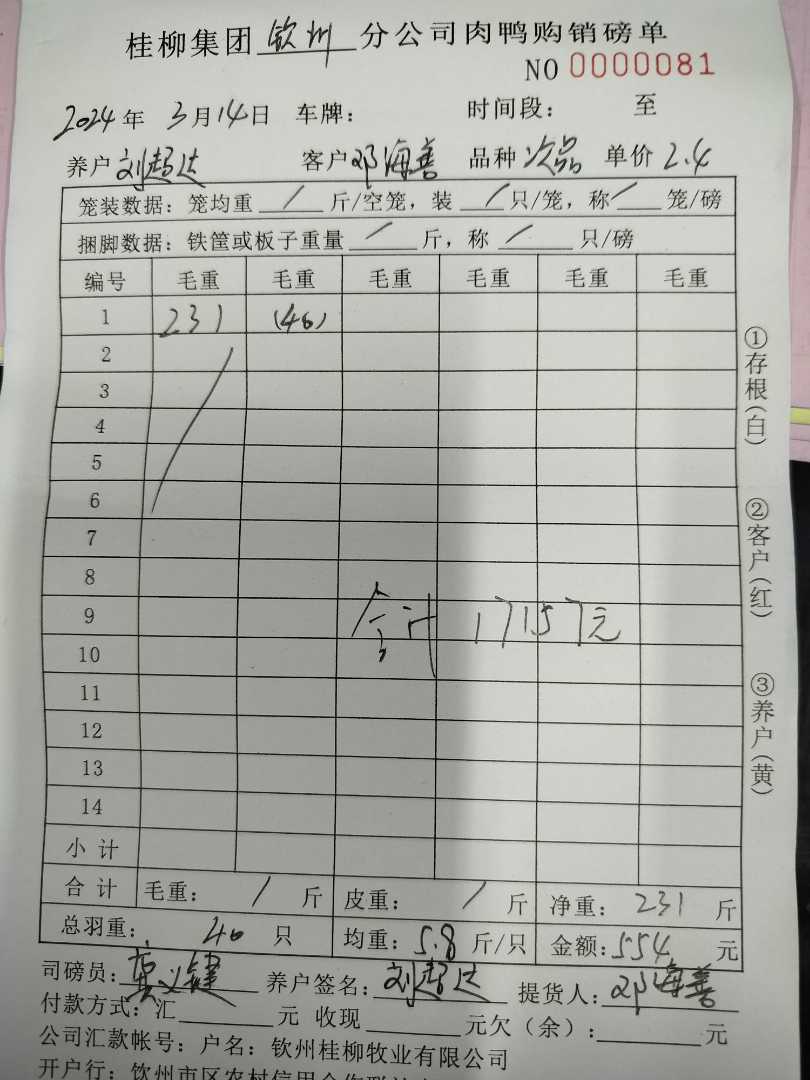 桂柳集团 钦州 分公司肉鸭购销磅单
NO 0000081
2024年 3月14日 车牌: 时间段: 至
养户 刘超达 客户 邓海善 品种 次品 单价 2.4
笼装数据: 笼均重 / 斤/空笼, 装 / 只/笼, 称 / 笼/磅
捆脚数据: 铁筐或板子重量 / 斤, 称 / 只/磅
编号 毛重 毛重 毛重 毛重 毛重 毛重
1 231 (40)
2
3
4
5
6
7
8
9 合计 17157元
10
11
12
13
14
小计
合计 毛重: / 斤 皮重: / 斤 净重: 231 斤
总羽重: 40 只 均重: 5.8 斤/只 金额: 554 元
司磅员: 养户签名: 刘超达 提货人: 邓海善
付款方式: 汇 元 收现 元欠(余): 元
公司汇款帐号: 户名: 钦州桂柳牧业有限公司
开户行: 钦州市区农村信用合作联社
①存根(白)
②客户(红)
③养户(黄)